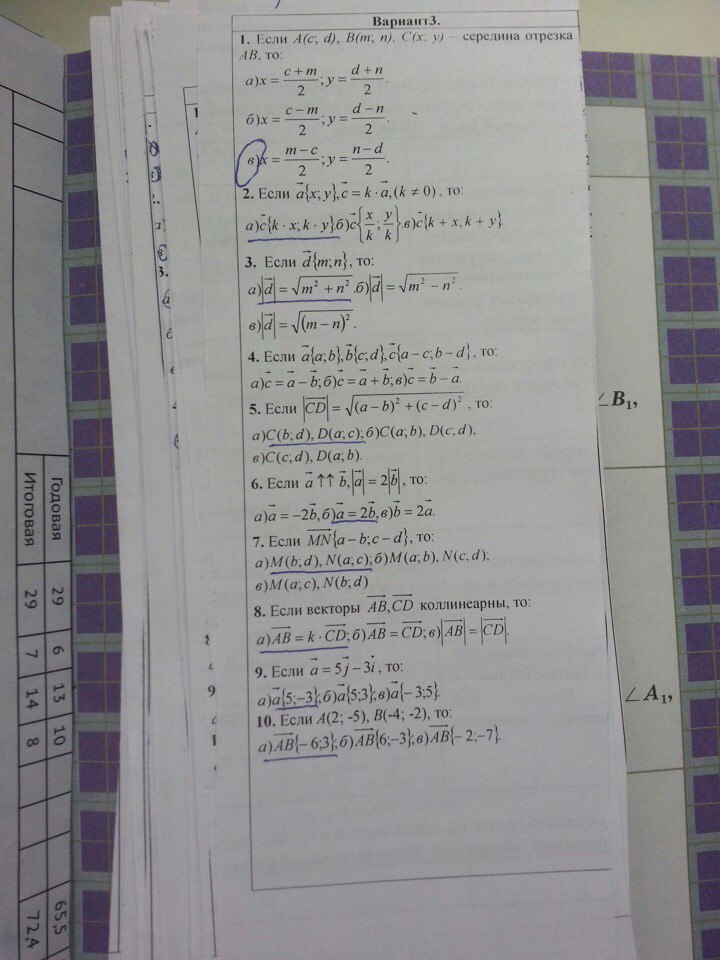 Вариант3.
1. Если A(c; d), B(m; n), C(x; y) – середина отрезка
AB, то:
а)x = (c + m)/2; y = (d + n)/2.
б)x = (c − m)/2; y = (d − n)/2.
в)x = (m − c)/2; y = (n − d)/2.
2. Если a⃗{x; y}, c⃗ = k · a⃗, (k ≠ 0), то:
а)c⃗{k · x; k · y} б)c⃗{x/k; y/k}.в)c⃗{k + x, k + y}
3. Если d⃗{m; n}, то:
а)|d⃗| = √(m² + n²).б)|d⃗| = √(m² − n²).
в)|d⃗| = √((m − n)²).
4. Если a⃗{a; b}, b⃗{c; d}, c⃗{a − c; b − d}, то:
а)c⃗ = a⃗ − b⃗; б)c⃗ = a⃗ + b⃗; в)c⃗ = b⃗ − a⃗.
5. Если |CD⃗| = √((a − b)² + (c − d)²), то:
а)C(b; d), D(a; c); б)C(a; b), D(c; d),
в)C(c; d), D(a; b).
6. Если a⃗ ↑↑ b⃗, |a⃗| = 2|b⃗|, то:
а)a⃗ = −2b⃗, б)a⃗ = 2b⃗, в)b⃗ = 2a⃗.
7. Если MN⃗{a − b; c − d}, то:
а)M(b; d), N(a; c); б)M(a; b), N(c; d);
в)M(a; c), N(b; d)
8. Если векторы AB⃗, CD⃗ коллинеарны, то:
а)AB⃗ = k · CD⃗; б)AB⃗ = CD⃗; в)|AB⃗| = |CD⃗|.
9. Если a⃗ = 5j⃗ − 3i⃗, то:
а)a⃗{5;−3}; б)a⃗{5;3}; в)a⃗{− 3;5}.
10. Если A(2; -5), B(-4; -2), то:
а)AB⃗{− 6;3}; б)AB⃗{6;−3}; в)AB⃗{− 2;−7}.
∠B₁,
∠A₁,
Годовая 29 6 13 10 65,5
Итоговая 29 7 14 8 72,4